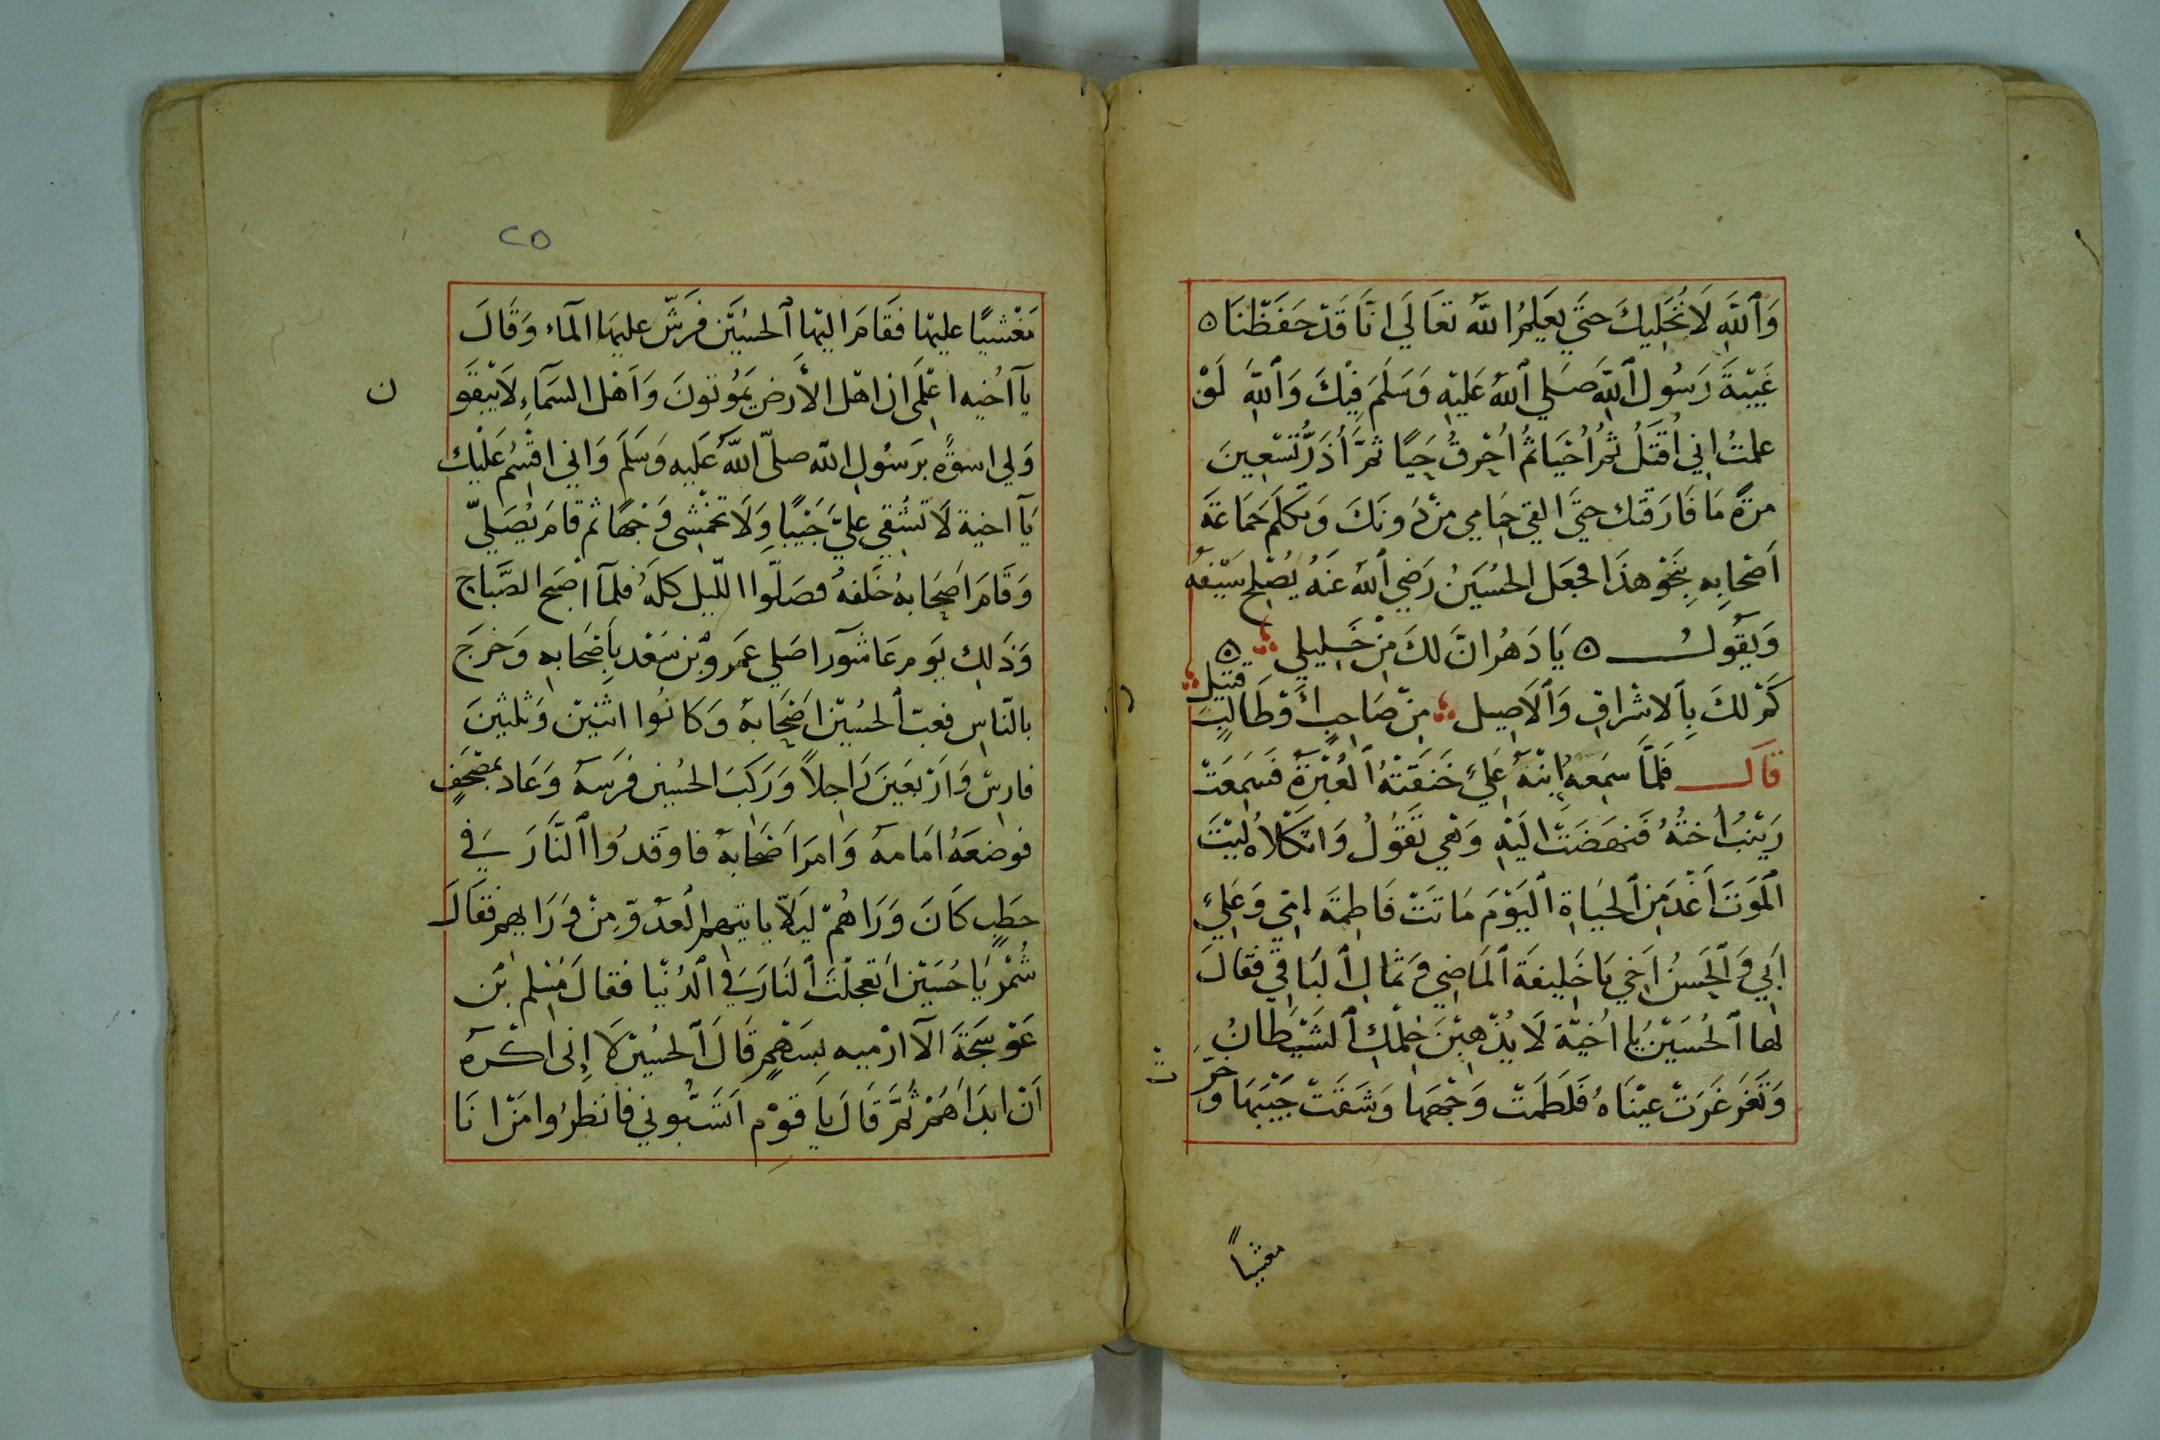 وَٱللَّهِ لَا نُخَلِيكَ حتَّي يَعلمُ اللهُ تعَالَي انَّا قَدْ حَفَظْنَا ٥
غَيْبَةَ رَسُول ٱللهِ صَلي ٱللهُ عَليْهِ وَسَلَمَ فِيْكَ وَٱللهِ لَوْ
علمتُ اني اُقتَلُ ثمُ اُحْيَا ثمُ اُحْرِقُ حَيًا ثمَّ اُذَرُّ تسْعِينَ
مرةً مَا فَارَقتك حتَّي القي حمَامي منْ دُونَكَ وَتكلمَ جمَاعَة
اَصْحَابِهِ بِنَحْو هذَا فجعَل الحُسَينُ رَضي ٱللهُ عَنهُ يُصْلِح سَيْفهُ
وَيَقُولُ ٥ يَا دَهرُ انَّ لكَ مِنْ خَلِيلي ٥
كَمْ لكَ بِٱلاشْرَاقِ وَٱلاَصِيل مِنْ صَاحِبٍ وَطَالِبٍ قتيل
قال فَلَمَّا سمَعهُ ابنهُ عَلِيٌ خَنقَتْهُ ٱلعُبْرَةُ فسَمِعَتْ
زَيْنبُ اُختُهُ فَنهَضَتْ الَيْهِ وَهْي تَقوُلُ وَاثكْلاهُ لَيْتَ
ٱلمَوتَ اَعْدَمَنِ ٱلحَيَاةِ ٱليَوْمَ مَاتَتْ فَاطِمَة امِّي وَعَلِيٌ
اَبي وَٱلحَسنُ اَخي يَا خَلِيفَةَ ٱلمَاضِي وَثمَال ٱلبَاقي فقالَ
لها ٱلحُسَيْنُ يا اُخيَّة لَا يُذْهِبَنَ حِلمَكِ ٱلشَيْطَانُ
وَتَغَرْغَرَتْ عيْنَاهُ فَلَطَمَتْ وَجْهَهَا وَشَقتْ جَيْبَهَا وَخرّ
ت
مغشيا
٢٥
مَغْشيًا عليهَا فَقَامَ اليْهَا ٱلحسُيْن فرَشّ عليهَا المآء وَقَالَ
يآ اُخيه اعْلمَي ان اهْل الأرض يَمُوتونَ وَاَهْل السَمآءِ لاَيْبقَو
ن
وَلي اسوَةٌ برَسُولِ الله صلىّ اللهُ عَليه وَسَلمَ وَاني اقْسِمُ عَليْك
يَآ اخية لَا تَشُقي عليَّ جَيْبًا وَلَا تخمْشِى وَجْهًا ثم قامَ يُصَليّ
وَقَامَ اَصحَابهُ خَلفهُ فصَلّوا اللّيل كلهُ فلمآ اصْبَح الصّبَاح
وَذَلِك يَوم عَاشوَرآ صَلي عَمروُ بْن سَعْد بِاَصْحَابهِ وَخرَج
بالنّاسِ فعبّ ٱلحسُيْن اَصْحَابهُ وَكانوُا اثنيْن وَثلثيْنَ
فارِسّ وَاَرْبَعينَ رَاجلاً وَرَكبَ الحسُين فرَسهُ وَعَاد بمصْحَفٍ
فوضعَهُ امَامهُ وَامرَ اَصْحَابهُ فاوقَدوُا ٱلنّارَ في
حطَبٍ كَانَ وَرَاهُمْ لِيَلاّ ياتيهم العدُوّ مِنْ وَرَايهم فقَالَ
شُمْرٌ يَا حُسَيْن اَتعجلْتَ ٱلنارَ في ٱلدُنْيَا فقالَ مُسْلم بْن
عَوْسَجَة اَلآ ارْميه بسَهْمٍ قَالَ ٱلحسُيْن لَا اِني اكْرَهُ
اَنْ ابدَاهُمْ ثمَّ قَالَ يَا قوْم اَنسْبُوني فانظرُوا مَنْ انَا